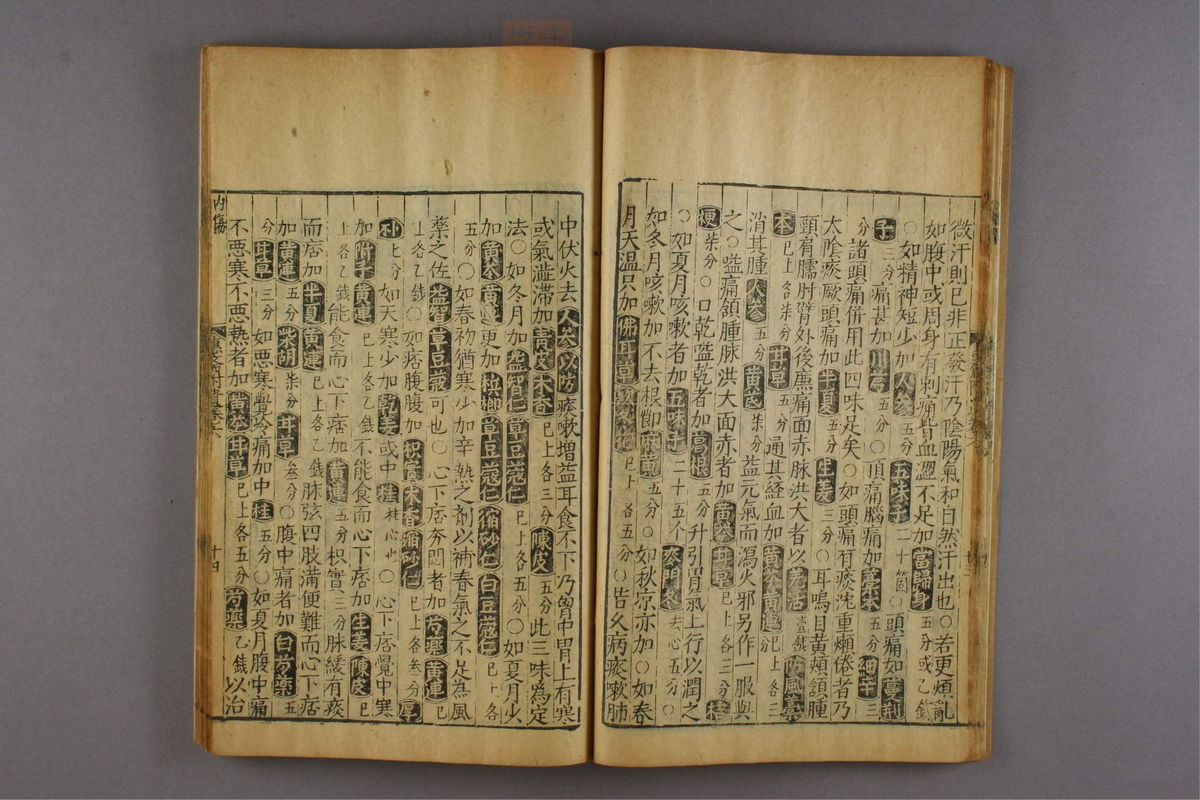 微汗則已非正發汗乃陰陽氣和自然汗出也○若更煩亂
如腹中或周身有刺痛皆血澀不足加當歸身五分或乙錢
○如精神短少加人參五分五味子二十箇○頭痛加蔓荊
子三分痛甚加川芎五分○頂痛腦痛加藁本五分細辛三
分諸頭痛併用此四味足矣○如頭痛有痰沈重懶倦者乃
太陰痰厥頭痛加半夏五分生姜三分○耳鳴目黃頰頷腫
頸肩臑肘臂外後廉痛面赤脉洪大者以羌活壹錢防風藁
本已上各柒分甘草五分通其經血加黃芩黃連已上各三分
消其腫人參五分黃芪柒分益元氣而瀉火邪另作一服與
之○嗌痛頷腫脉洪大面赤者加黃芩甘草已上各三分桔
梗柒分○口乾嗌乾者加葛根五分升引胃氣上行以潤之
○如夏月咳嗽者加五味子二十五个麥門冬去心五分○
如冬月咳嗽加不去根節麻黃五分○如秋凉亦加○如春
月天溫只加佛耳草款冬花已上各五分○若久病痰嗽肺
中伏火去人參以防痰嗽增益耳食不下乃胷中胃上有寒
或氣澁滯加青皮木香已上各三分陳皮五分此三味爲定
法○如冬月加益智仁草豆蔻仁已上各五分○如夏月少
加黃芩黃連更加梹榔草豆蔻仁縮砂仁白豆蔻仁已上各
五分○如春初猶寒少加辛熱之劑以補春氣之不足為風
藥之佐益智草豆蔻可也○心下痞夯悶者加芍藥黃連已
上各乙錢○如痞腹脹加枳實木香縮砂仁已上各叁分厚
朴七分如天寒少加乾姜或中桂桂心也○心下痞覺中寒
加附子黃連已上各乙錢不能食而心下痞加生姜陳皮已
上各乙錢能食而心下痞加黃連五分枳實三分脉緩有痰
而痞加半夏黃連已上各乙錢脉弦四肢滿便難而心下痞
加黃連五分柴胡柒分甘草叁分○腹中痛者加白芍藥五
分甘草三分如惡寒覺冷痛加中桂五分○如夏月腹中痛
不惡寒不惡熱者加黃芩甘草已上各五分芍藥乙錢以治
內傷
十四